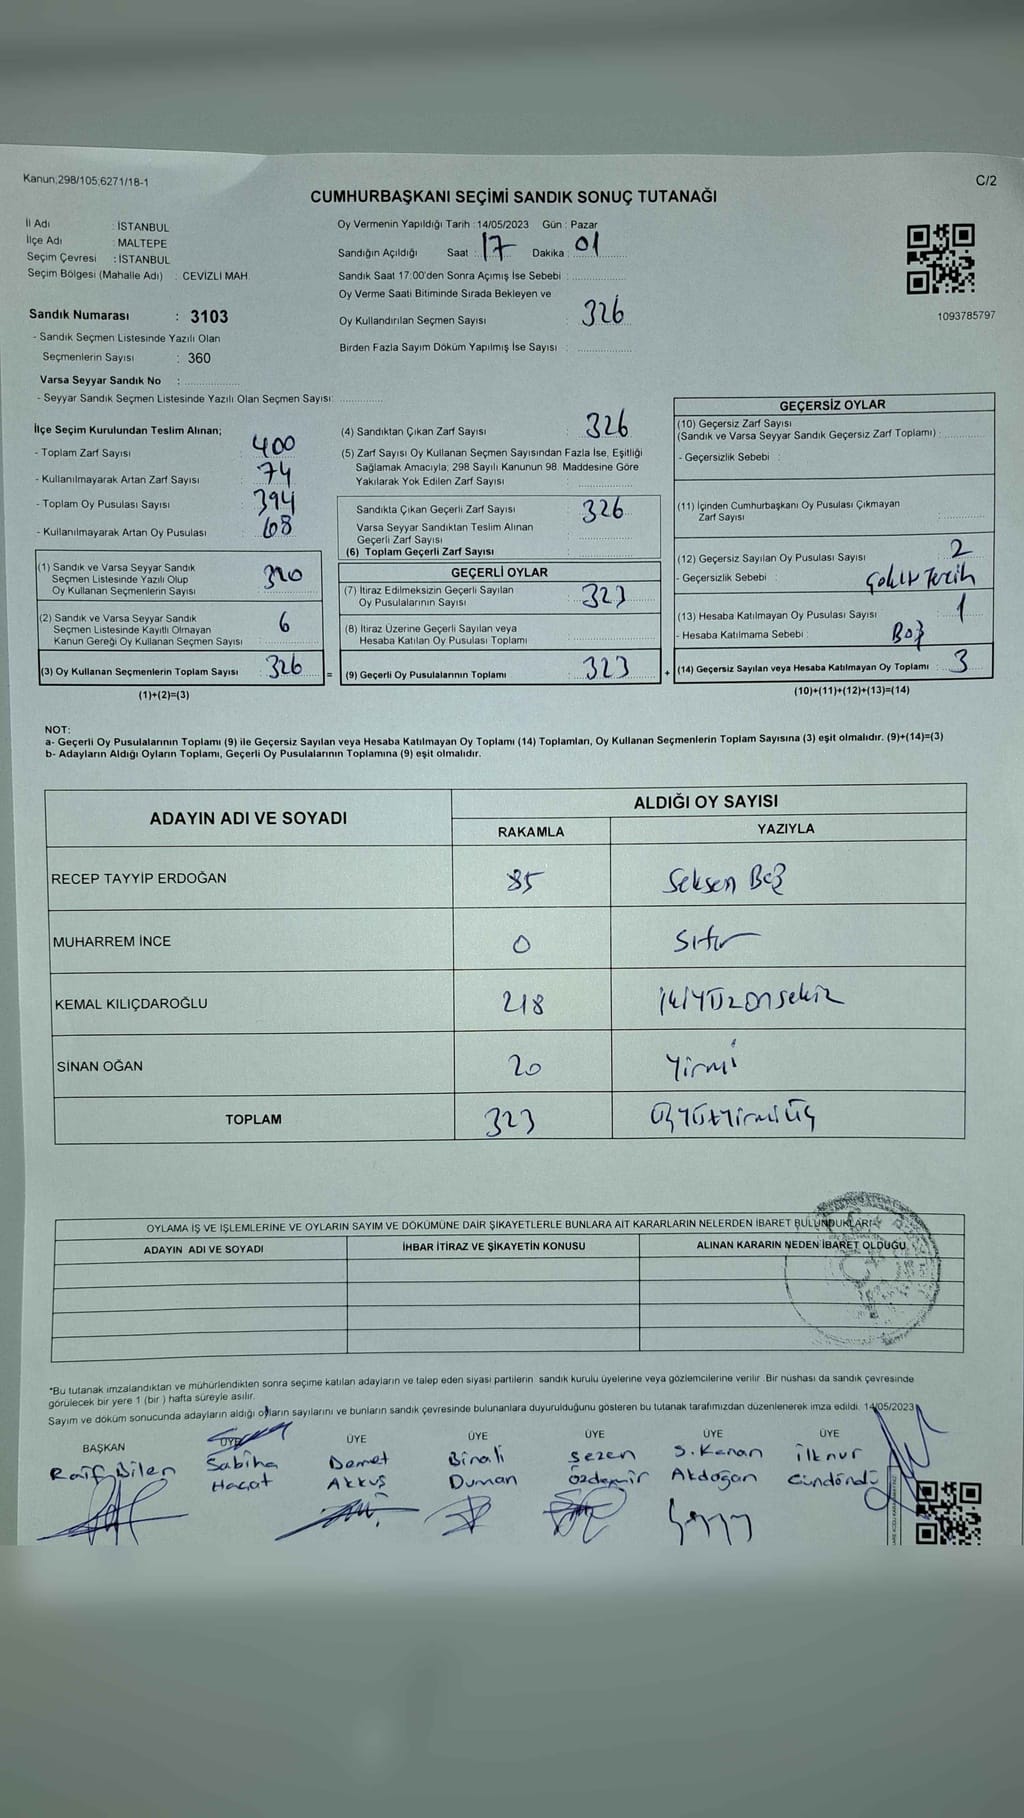 Kanun;298/105;6271/18-1
C/2
CUMHURBAŞKANI SEÇİMİ SANDIK SONUÇ TUTANAĞI
İl Adı : İSTANBUL
İlçe Adı : MALTEPE
Seçim Çevresi : İSTANBUL
Seçim Bölgesi (Mahalle Adı) : CEVİZLİ MAH.
Sandık Numarası : 3103
- Sandık Seçmen Listesinde Yazılı Olan
Seçmenlerin Sayısı : 360
Varsa Seyyar Sandık No :
- Seyyar Sandık Seçmen Listesinde Yazılı Olan Seçmen Sayısı:
Oy Vermenin Yapıldığı Tarih : 14/05/2023 Gün : Pazar
Sandığın Açıldığı Saat : 17 Dakika : 01
Sandık Saat 17:00'den Sonra Açımış İse Sebebi :
Oy Verme Saati Bitiminde Sırada Bekleyen ve
Oy Kullandırılan Seçmen Sayısı : 326
Birden Fazla Sayım Döküm Yapılmış İse Sayısı :
1093785797
İlçe Seçim Kurulundan Teslim Alınan;
- Toplam Zarf Sayısı : 400
- Kullanılmayarak Artan Zarf Sayısı : 74
- Toplam Oy Pusulası Sayısı : 394
- Kullanılmayarak Artan Oy Pusulası : 68
(1) Sandık ve Varsa Seyyar Sandık
Seçmen Listesinde Yazılı Olup
Oy Kullanan Seçmenlerin Sayısı : 320
(2) Sandık ve Varsa Seyyar Sandık
Seçmen Listesinde Kayıtlı Olmayan
Kanun Gereği Oy Kullanan Seçmen Sayısı : 6
(3) Oy Kullanan Seçmenlerin Toplam Sayısı : 326
(1)+(2)=(3)
(4) Sandıktan Çıkan Zarf Sayısı : 326
(5) Zarf Sayısı Oy Kullanan Seçmen Sayısından Fazla İse, Eşitliği
Sağlamak Amacıyla; 298 Sayılı Kanunun 98. Maddesine Göre
Yakılarak Yok Edilen Zarf Sayısı :
Sandıkta Çıkan Geçerli Zarf Sayısı : 326
Varsa Seyyar Sandıktan Teslim Alınan
Geçerli Zarf Sayısı :
(6) Toplam Geçerli Zarf Sayısı :
GEÇERLİ OYLAR
(7) İtiraz Edilmeksizin Geçerli Sayılan
Oy Pusulalarının Sayısı : 323
(8) İtiraz Üzerine Geçerli Sayılan veya
Hesaba Katılan Oy Pusulası Toplamı :
= (9) Geçerli Oy Pusulalarının Toplamı : 323
GEÇERSİZ OYLAR
(10) Geçersiz Zarf Sayısı
(Sandık ve Varsa Seyyar Sandık Geçersiz Zarf Toplamı) :
- Geçersizlik Sebebi :
(11) İçinden Cumhurbaşkanı Oy Pusulası Çıkmayan
Zarf Sayısı :
(12) Geçersiz Sayılan Oy Pusulası Sayısı : 2
- Geçersizlik Sebebi : Çoklu Tercih
(13) Hesaba Katılmayan Oy Pusulası Sayısı : 1
- Hesaba Katılmama Sebebi : Boş
+ (14) Geçersiz Sayılan veya Hesaba Katılmayan Oy Toplamı : 3
(10)+(11)+(12)+(13)=(14)
NOT:
a- Geçerli Oy Pusulalarının Toplamı (9) ile Geçersiz Sayılan veya Hesaba Katılmayan Oy Toplamı (14) Toplamları, Oy Kullanan Seçmenlerin Toplam Sayısına (3) eşit olmalıdır. (9)+(14)=(3)
b- Adayların Aldığı Oyların Toplamı, Geçerli Oy Pusulalarının Toplamına (9) eşit olmalıdır.
ADAYIN ADI VE SOYADI ALDIĞI OY SAYISI
RAKAMLA YAZIYLA
RECEP TAYYİP ERDOĞAN 85 Seksen Beş
MUHARREM İNCE 0 Sıfır
KEMAL KILIÇDAROĞLU 218 İkiYüzonsekiz
SİNAN OĞAN 20 Yirmi
TOPLAM 323 ÜçYüzYirmiÜç
OYLAMA İŞ VE İŞLEMLERİNE VE OYLARIN SAYIM VE DÖKÜMÜNE DAİR ŞİKAYETLERLE BUNLARA AİT KARARLARIN NELERDEN İBARET BULUNDUKLARI
ADAYIN ADI VE SOYADI İHBAR İTİRAZ VE ŞİKAYETİN KONUSU ALINAN KARARIN NEDEN İBARET OLDUĞU
*Bu tutanak imzalandıktan ve mühürlendikten sonra seçime katılan adayların ve talep eden siyasi partilerin sandık kurulu üyelerine veya gözlemcilerine verilir .Bir nüshası da sandık çevresinde
görülecek bir yere 1 (bir ) hafta süreyle asılır.
Sayım ve döküm sonucunda adayların aldığı oyların sayılarını ve bunların sandık çevresinde bulunanlara duyurulduğunu gösteren bu tutanak tarafımızdan düzenlenerek imza edildi. 14/05/2023
BAŞKAN ÜYE ÜYE ÜYE ÜYE ÜYE ÜYE
Raif Bilen Sabiha Demet Binali Sezen S. Kenan İlknur
Hacat Akkuş Duman Özdemir Akdoğan Gündöndü